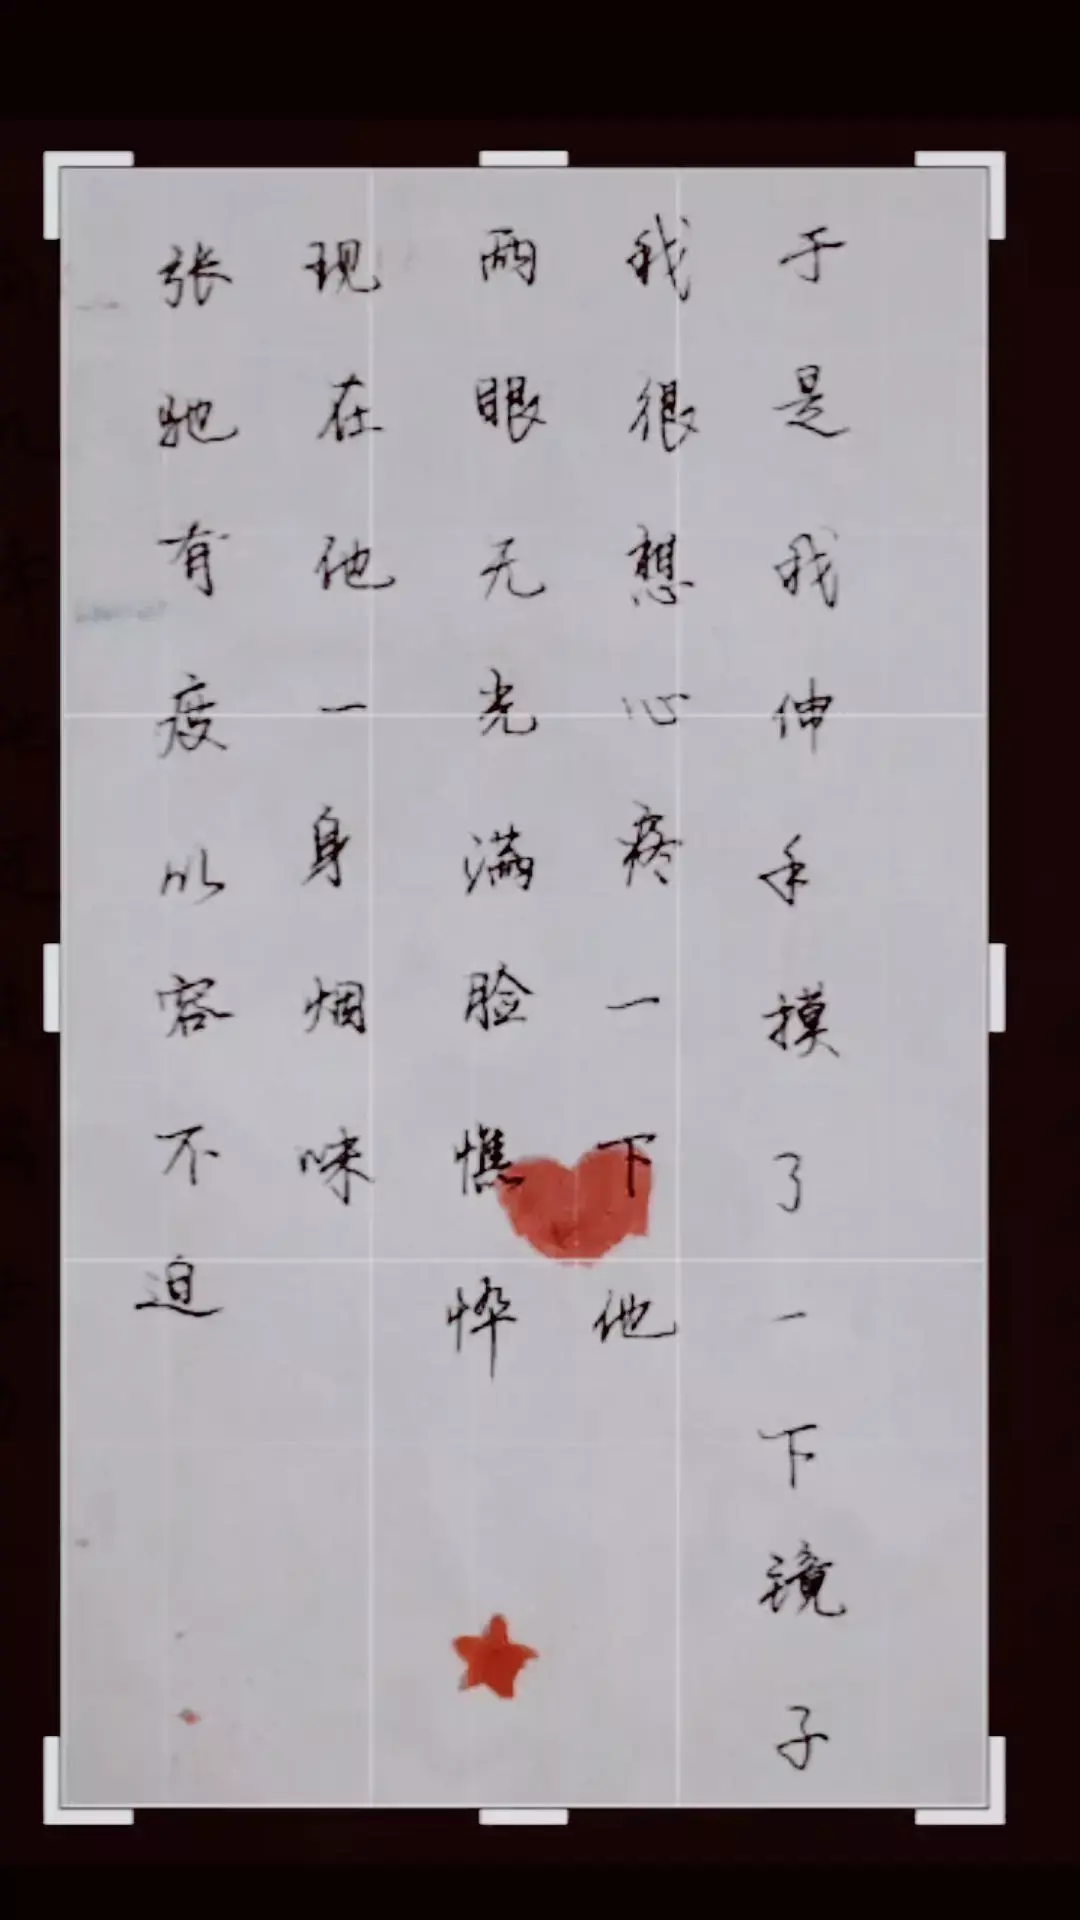 张驰有度从容不迫
现在他一身烟味
两眼无光满脸憔悴
我很想心疼一下他
于是我伸手摸了一下镜子